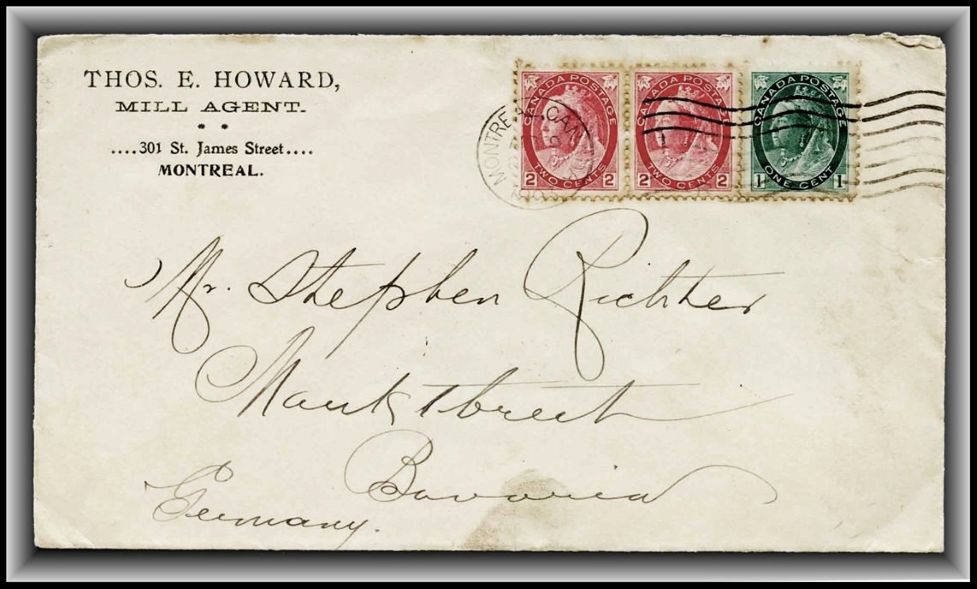 THOS. E. HOWARD,
MILL AGENT.
* *
....301 St. James Street....
MONTREAL.
CANADA POSTAGE
2 TWO CENTS 2
CANADA POSTAGE
2 TWO CENTS 2
CANADA POSTAGE
1 ONE CENT 1
MONTREAL. CAN
Mr. Stephen Richter
Bavaria
Germany.